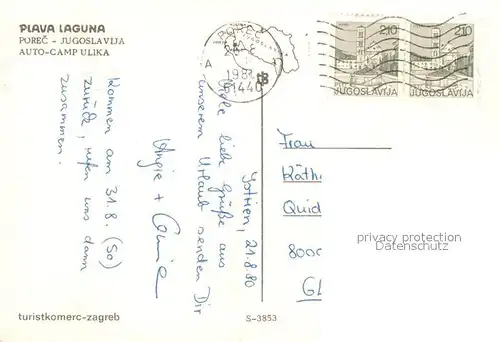 PLAVA LAGUNA
POREČ – JUGOSLAVIJA
AUTO-CAMP ULIKA
POREČ
A
1980
51440
2.10
JUGOSLAVIJA
2.10
JUGOSLAVIJA
Istrien, 21.8.80
Viele liebe Grüße aus
unserem Urlaub senden Dir
Angie +
Kommen am 31.8. (So)
zurück, rufen uns dann
zusammen.
Frau
Käth
Quid
800
privacy protection
Datenschutz
turistkomerc-zagreb
S-3853